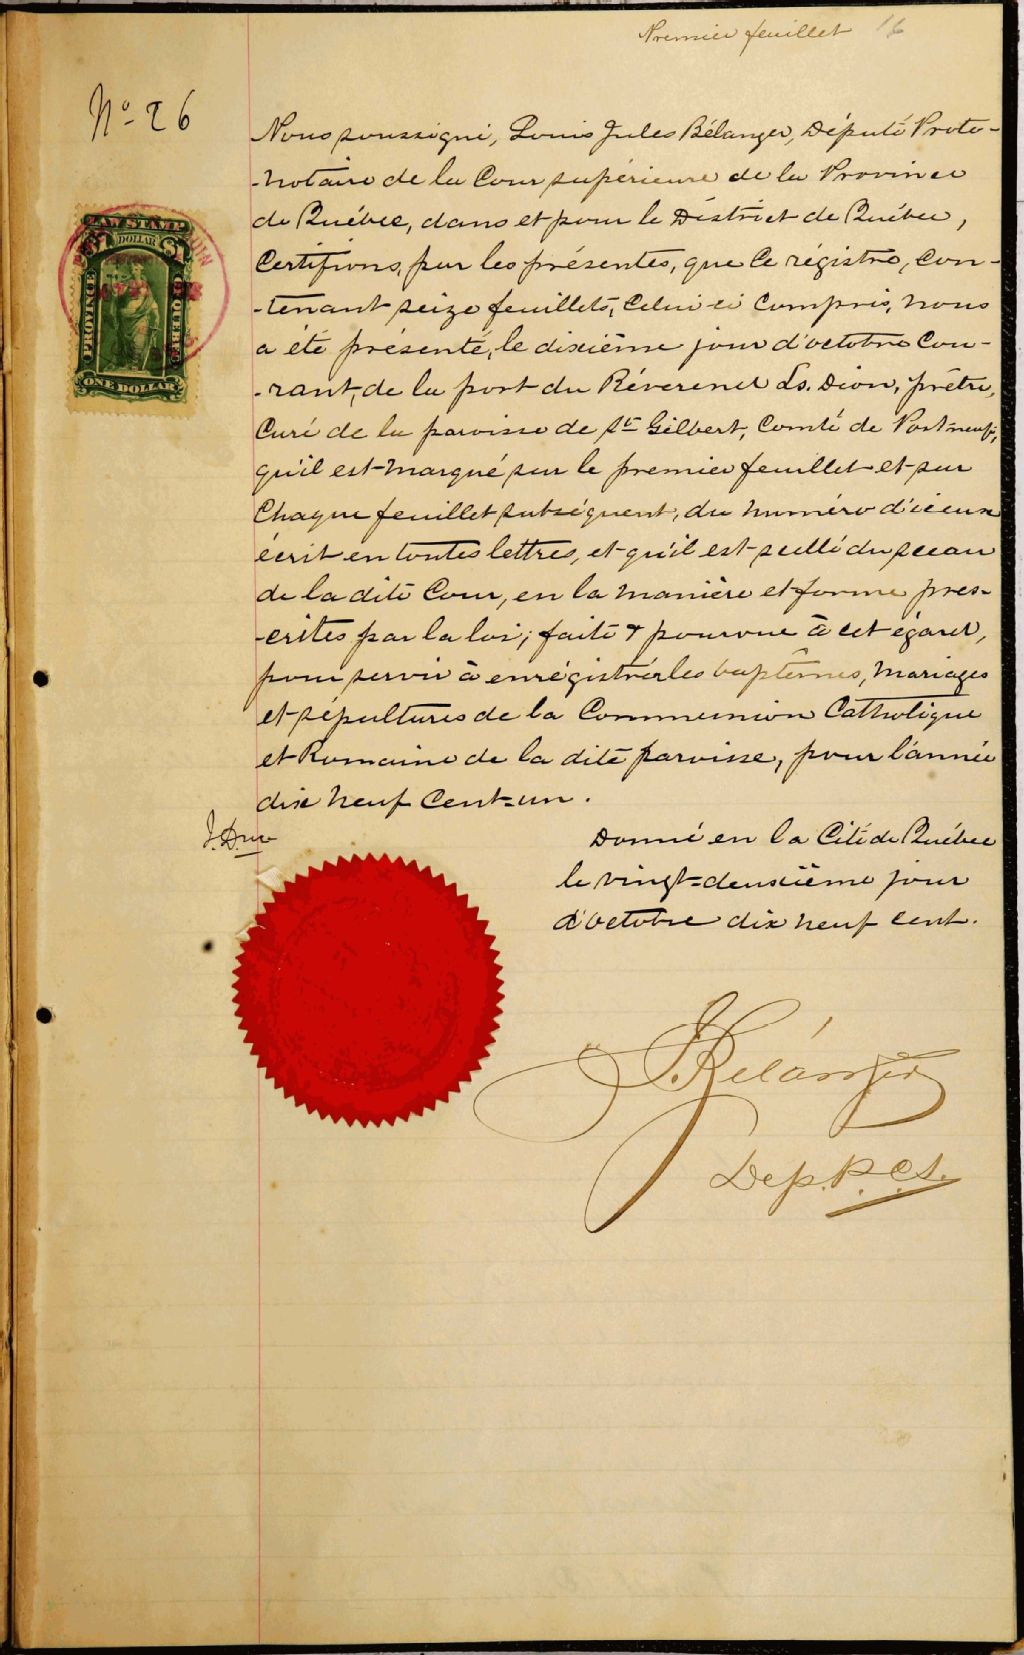 Premier feuillet 16
No 26
Nous soussigné, Louis Jules Bélanger, Député Proto-
-notaire de la Cour supérieure de la Province
de Québec, dans et pour le District de Québec,
Certifions, par les présentes, que ce régistre, con-
-tenant seize feuillets, celui-ci compris, nous
a été présenté, le dixième jour d'octobre cou-
-rant, de la part du Révérend Ls. Dion, prêtre,
Curé de la paroisse de St Gilbert, Comté de Portneuf,
qu'il est marqué sur le premier feuillet et sur
chaque feuillet subséquent, du numéro d'iceux
écrit en toutes lettres, et qu'il est scellé du sceau
de la dite Cour, en la manière et forme pres-
-crites par la loi; faite & pourvue à cet égard,
pour servir à enrégistrer les baptêmes, mariages
et sépultures de la Communion Catholique
et Romaine de la dite paroisse, pour l'année
dix neuf cent-un.
Donné en la Cité de Québec
le vingt-deuxième jour
d'octobre dix neuf cent.
LAW STAMP
$1 DOLLAR $1
PROVINCE
OF QUEBEC
ONE DOLLAR
J. Bélanger
Dep. P.C.S.